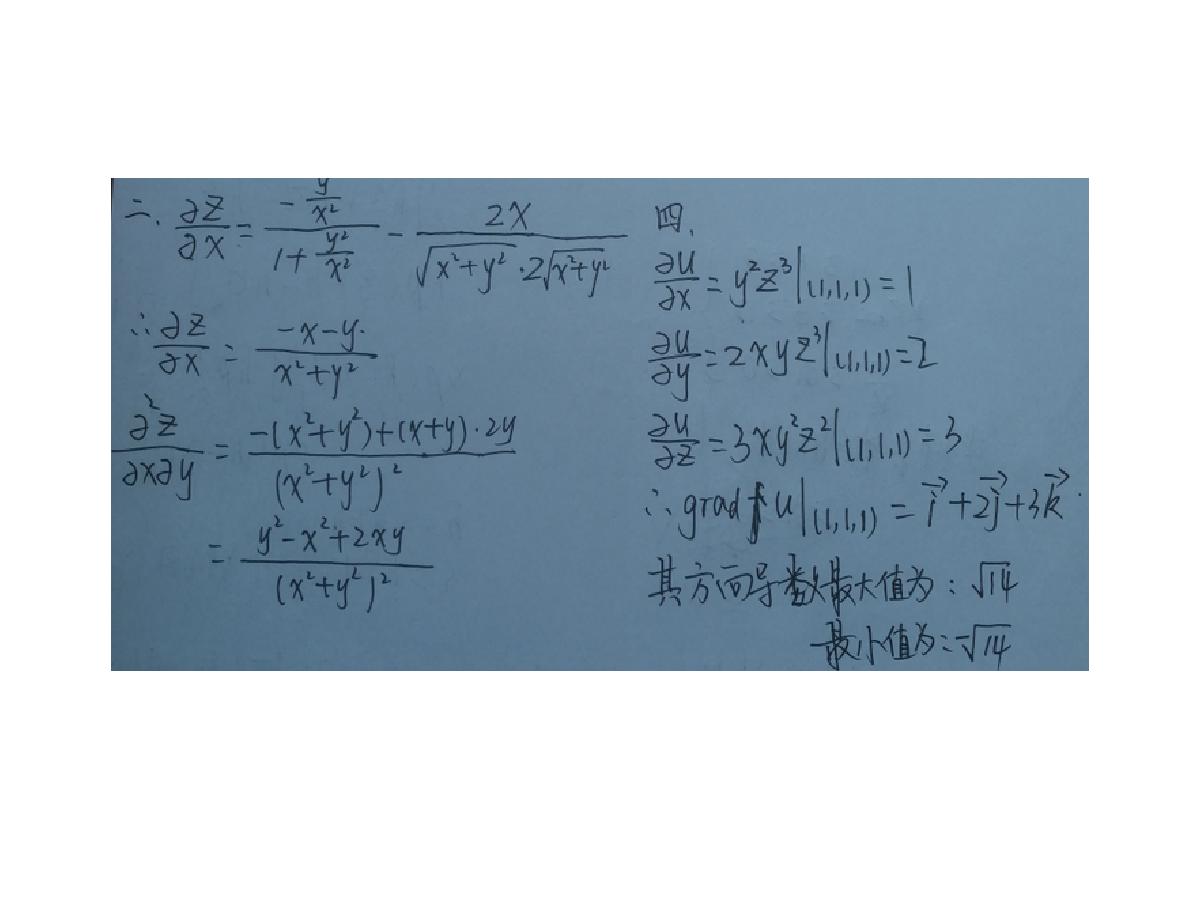 二. ∂z/∂x = (-y/x²)/(1+y²/x²) - 2x/(√(x²+y²)·2√(x²+y²))
∴ ∂z/∂x = (-x-y)/(x²+y²)
∂²z/∂x∂y = (-(x²+y²)+(x+y)·2y)/(x²+y²)²
= (y²-x²+2xy)/(x²+y²)²
四.
∂u/∂x = y²z³|(1,1,1) = 1
∂u/∂y = 2xyz³|(1,1,1) = 2
∂u/∂z = 3xy²z²|(1,1,1) = 3
∴ grad u|(1,1,1) = i⃗+2j⃗+3k⃗.
其方向导数最大值为：√14
最小值为：-√14